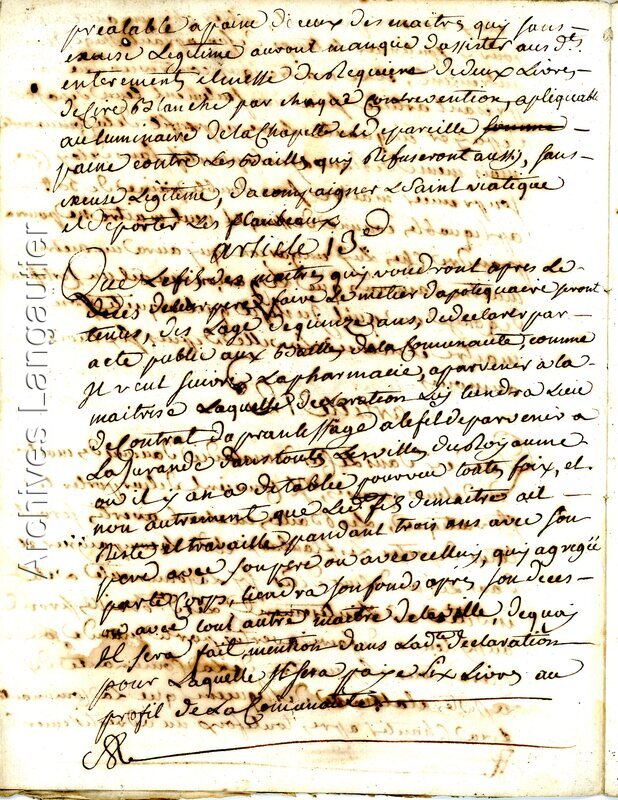 préalable a paine de ceux des maitres quy sans
excuse Legitime auront manqué dassister aus dts
enterements et messe de Requiem de deux Livres
de Cire Blanche par chaque Contrevention, apliquable
au luminaire de la Chapelle et de pareille somme
paine contre Les Bailles, quy Refuseront aussy, sans
excuse Legitime, dacompaigner Le Saint viatique
et de porter Les flambeaux
article 13e
Que Le fils des maitres quy voudront apres Le
Déses de leur pere faire Le metier dapotiquaire seront
tenus, des Lage de quinze ans, de declarer par
acte public aux Bailles de la Communauté, comme
Il veut suivre La pharmacie, a parvenir a la
maitrise Laquelle declaration Luy tiendra Lieu
de Contrat daprantissage a le fil de parvenir a
La Jurande dans toutes Les villes du Royaume
ou il y an a de tablée pourveu toutes foix, et
non autrement que Led. fils de maitre ait
Resté et travaillé pandant trois ans avec son
pere avec son pere ou avec celluy, quy agregé
par le Corps, tiendra son fonds apres son deces
ou avec tout autre maitre de la ville, de quoy
Il sera fait mention dans Lad. declaration
pour Laquelle Il sera payé six Livres au
profit de La Comunauté
Archives Langautier